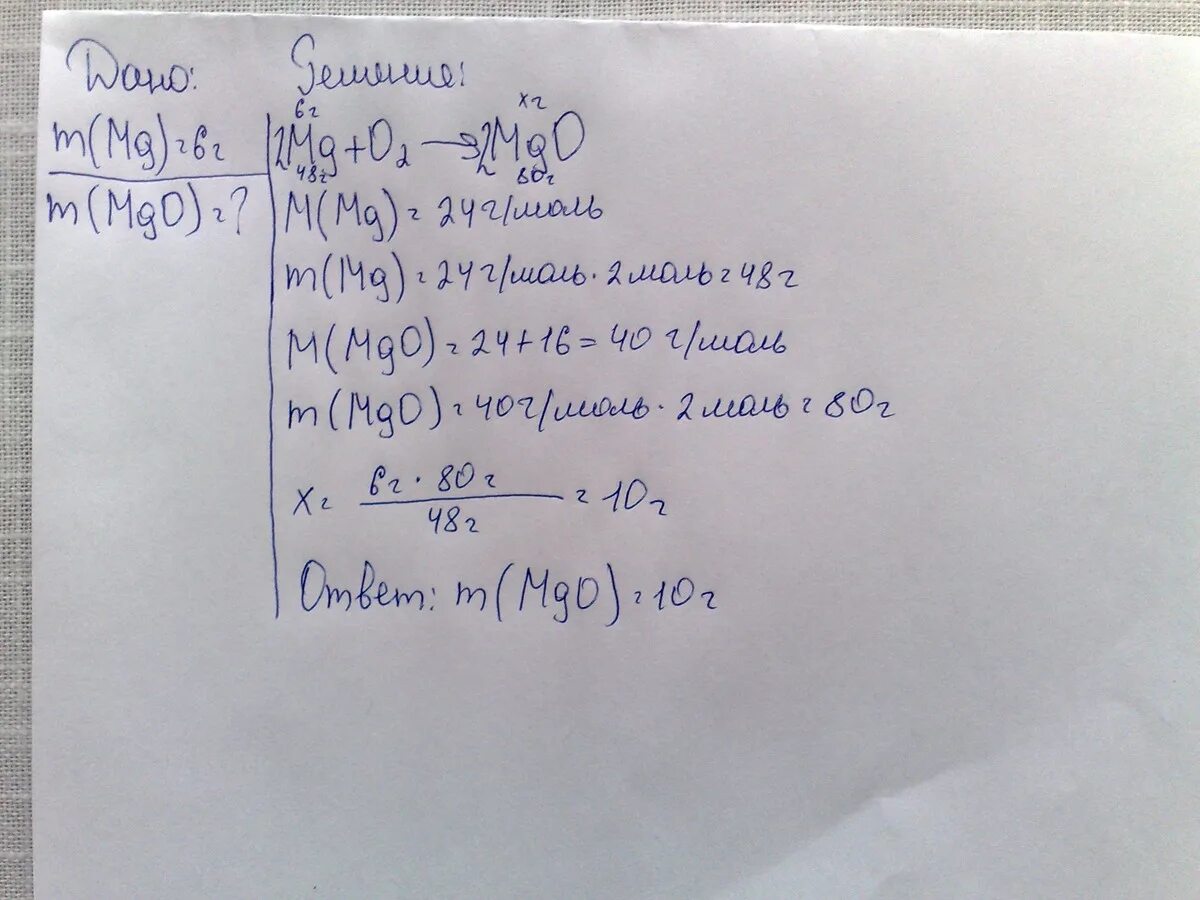 Дано: Решение:
6г хг
m(Mg)=6г 2Mg+O₂→2MgO
48г 80г
m(MgO)=? M(Mg)=24г/моль
m(Mg)=24г/моль·2моль=48г
M(MgO)=24+16=40 г/моль
m(MgO)=40г/моль·2моль=80г
x= 6г·80г / 48г = 10г
Ответ: m(MgO)=10г